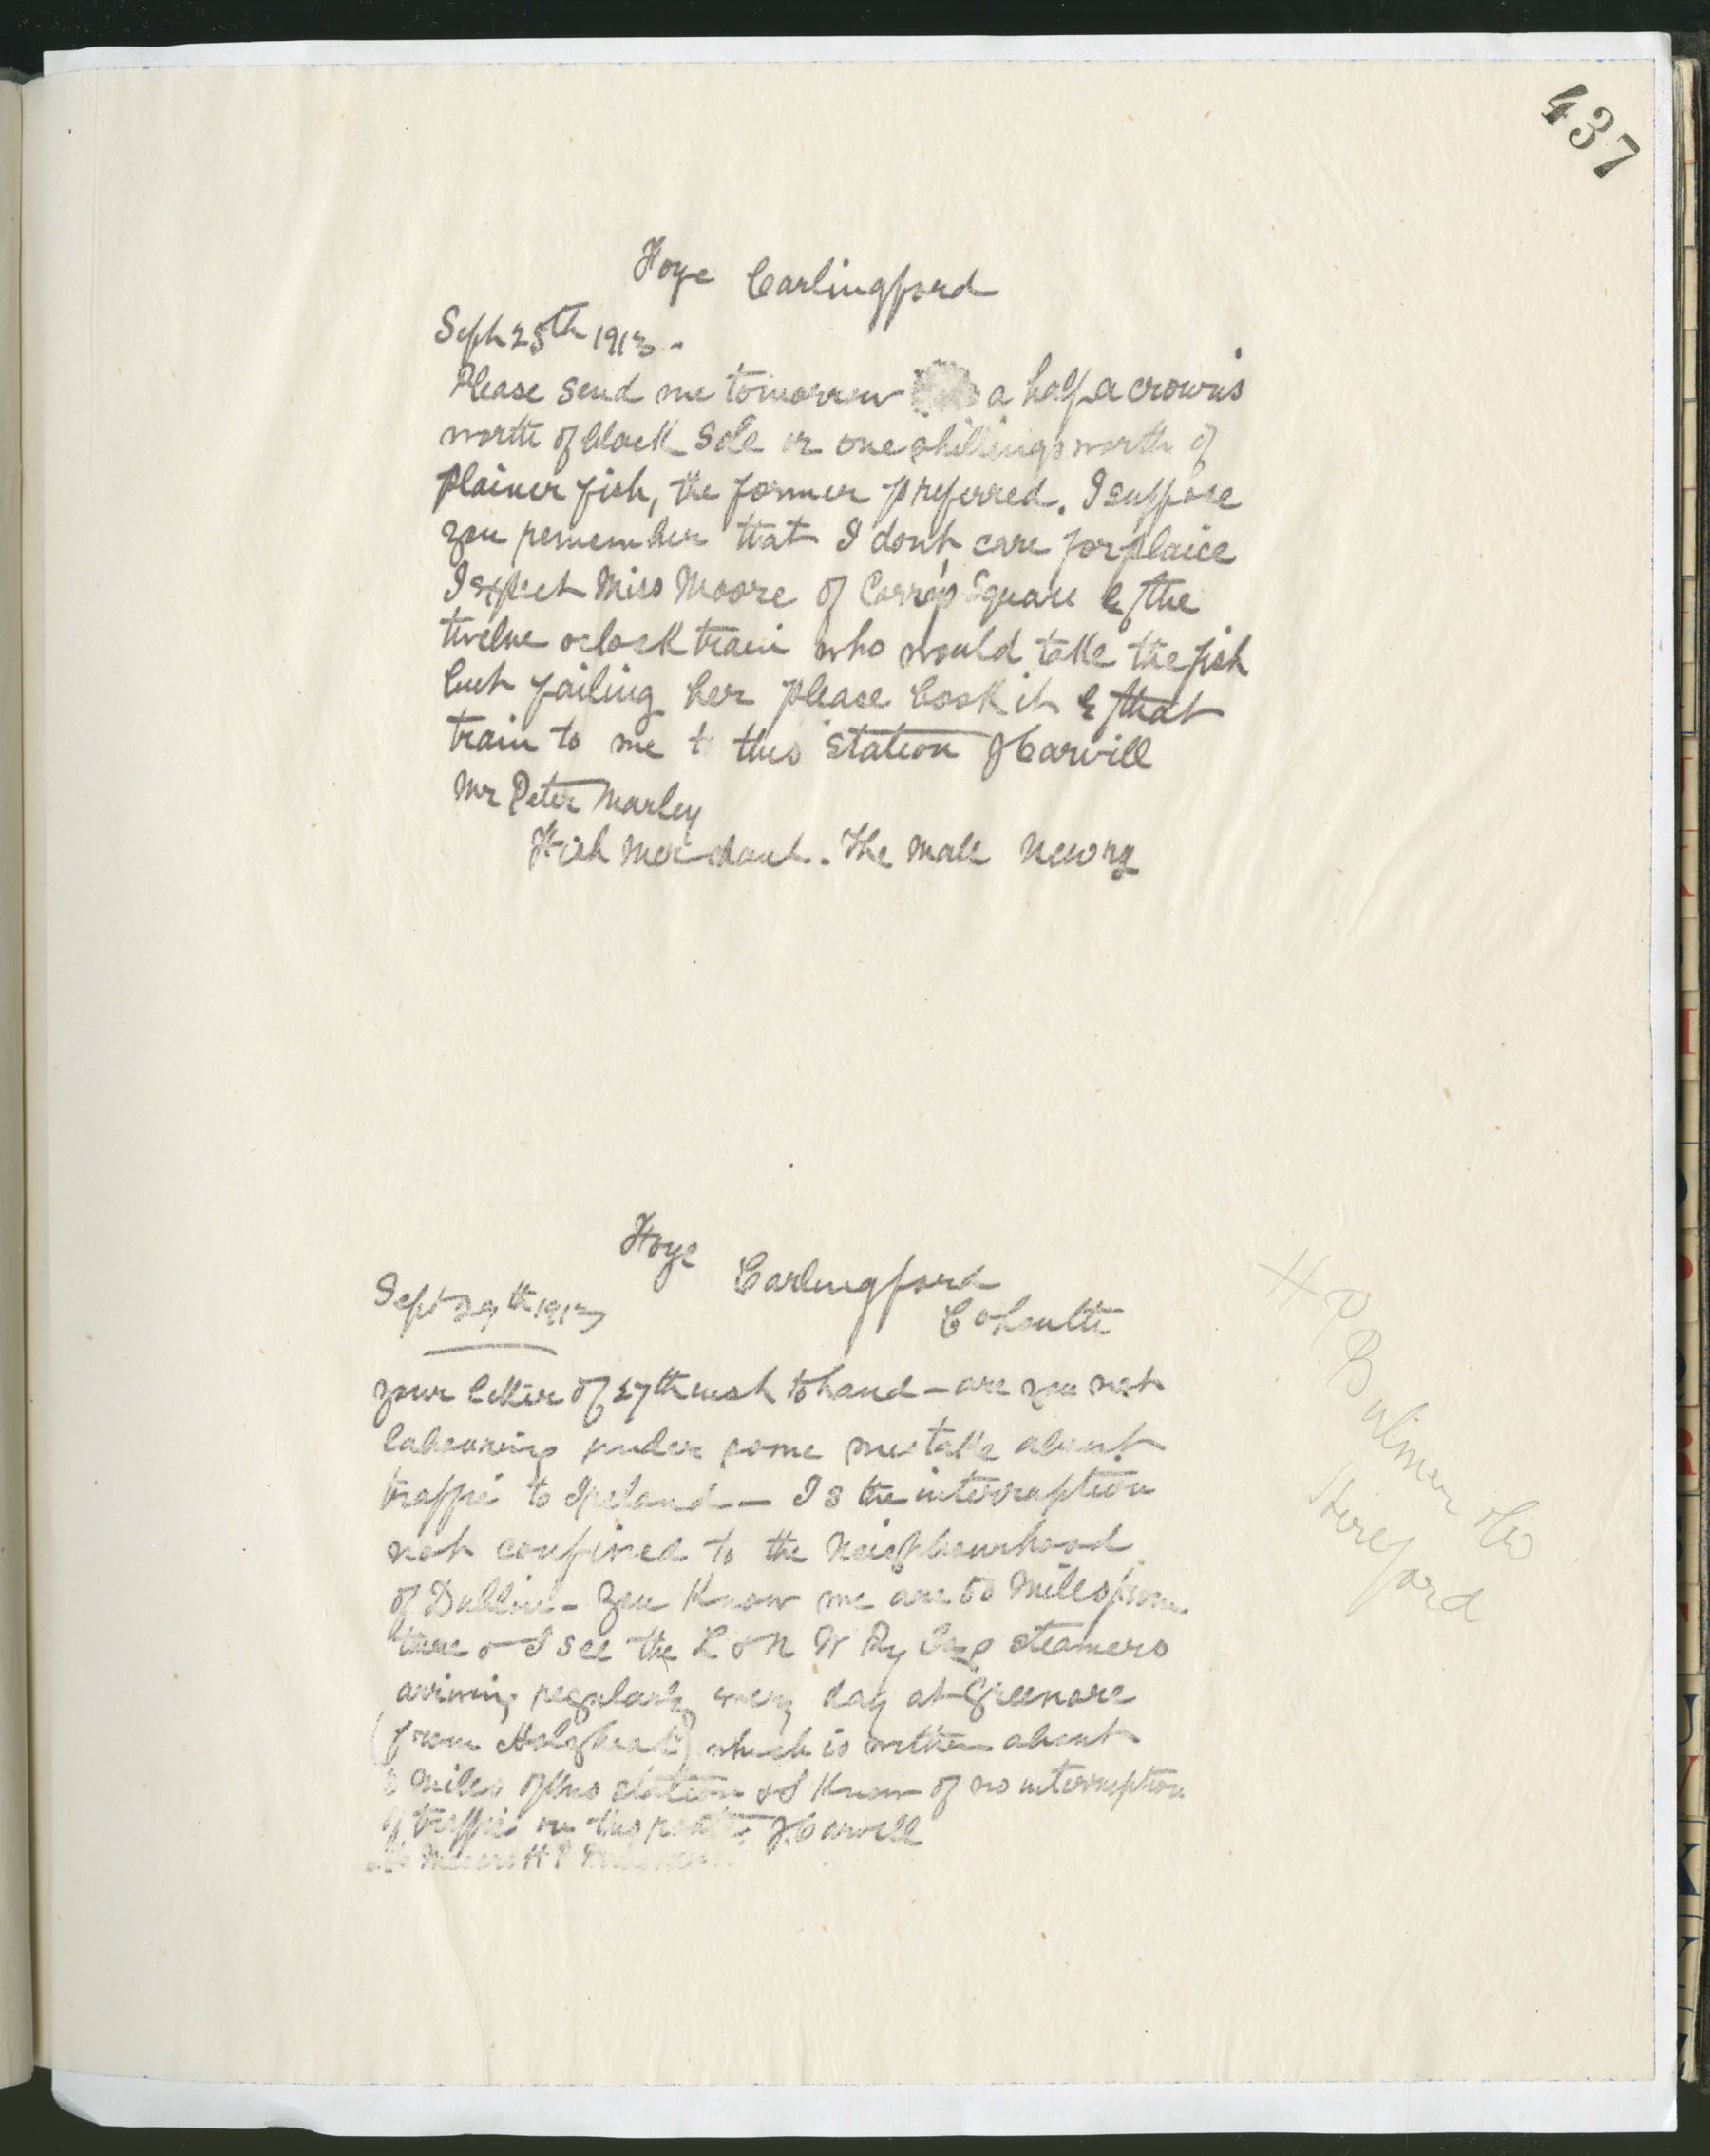 437
Foye Carlingford
Sept 25th 1913.
Please send me tomorrow a half a crown's
worth of black Sole or one shillings worth of
plainer fish, the former preferred. I suppose
you remember that I don't care for plaice
I expect Miss Moore of Corry's Square by the
twelve oclock train who would take the fish
but failing her please book it by that
train to me to this station J Carvill
Mr Peter Marley
Fish Merchant. The Mall Newry
Foye Carlingford
Sept 29th 1913
Co Louth
your letter of 27th inst to hand - are you not
labouring under some mistake about
traffic to Ireland - Is the interruption
not confined to the Neighbourhood
of Dublin - You Know we are 50 Miles from
there & I see the L & N W Ry Coys steamers
arriving regularly every day at Greenore
(from Holyhead) which is within about
Miles of this station & I Know of no interruption
of traffic on this route. J. Carvill
Messrs H P
H P Bulmer & Co
Hereford